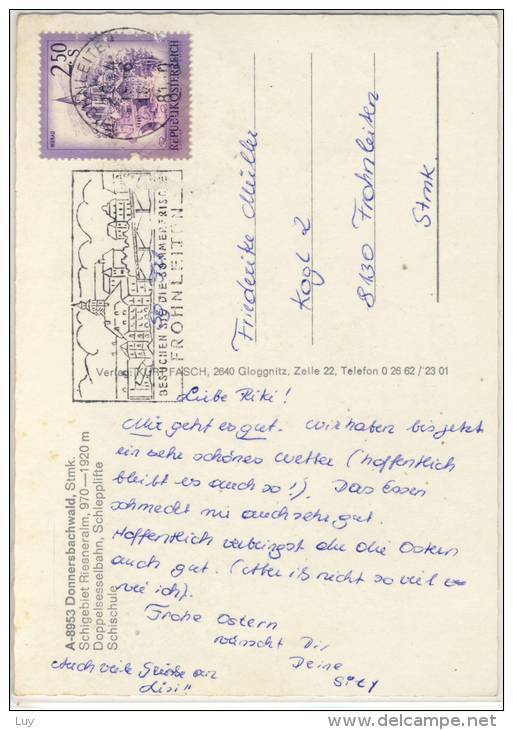 2.50 S
REPUBLIK ÖSTERREICH
MURAU
BESUCHEN SIE DIE SOMMERFRISCHE
FROHNLEITEN
Friederike Müller
Kogl 2
8130 Frohnleiten
Stmk.
Verlag: KURT FASCH, 2640 Gloggnitz, Zeile 22, Telefon 0 26 62 / 23 01
A-8953 Donnersbachwald, Stmk.
Schigebiet Riesneralm, 970—1920 m
Doppelsesselbahn, Schlepplifte
Schischule
Liebe Riki!
Mir geht es gut. Wir haben bis jetzt
ein sehr schönes Wetter (hoffentlich
bleibt es auch so!). Das Essen
schmeckt mir auch sehr gut.
Hoffentlich verbringst du die Ostern
auch gut. (Aber iß nicht so viel
wie ich).
Frohe Ostern
wünscht Dir
Deine
Auch viele Grüße an
Lisi!!
Luy
http://www.delcampe.net